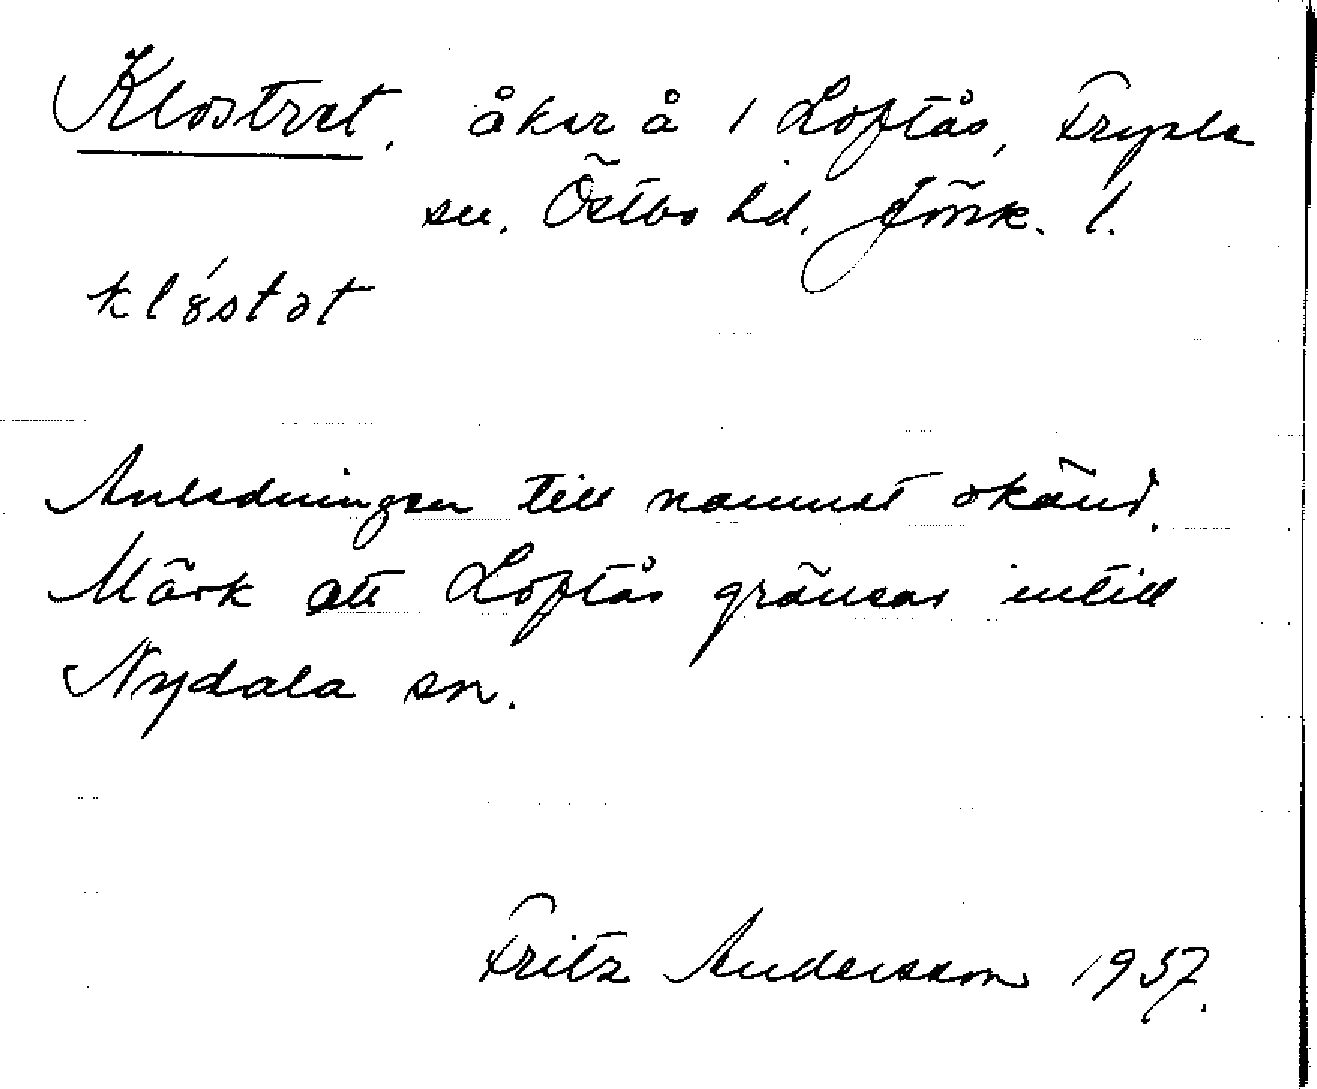 Klostret, åker å 1 Loftås, Fryele
sn. Östbo hd. Jönk. l.
klǿstət
Anledningen till namnet okänd.
Märk att Loftås gränsar intill
Nydala sn.
Fritz Andersson 1937.